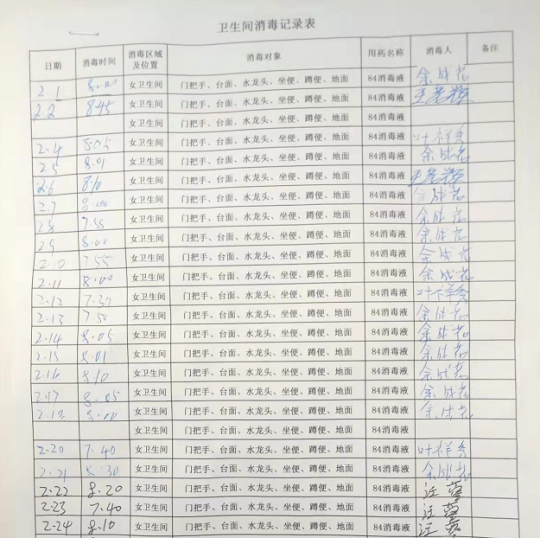 卫生间消毒记录表
日期 消毒时间 消毒区域及位置 消毒对象 用药名称 消毒人 备注
2.1 8.00 女卫生间 门把手、台面、水龙头、坐便、蹲便、地面 84消毒液
2.2 8.45 女卫生间 门把手、台面、水龙头、坐便、蹲便、地面 84消毒液
女卫生间 门把手、台面、水龙头、坐便、蹲便、地面 84消毒液
2.4 8.05 女卫生间 门把手、台面、水龙头、坐便、蹲便、地面 84消毒液
2.5 8.01 女卫生间 门把手、台面、水龙头、坐便、蹲便、地面 84消毒液
2.6 8.10 女卫生间 门把手、台面、水龙头、坐便、蹲便、地面 84消毒液
2.7 8.00 女卫生间 门把手、台面、水龙头、坐便、蹲便、地面 84消毒液
2.8 7.55 女卫生间 门把手、台面、水龙头、坐便、蹲便、地面 84消毒液
2.9 8.00 女卫生间 门把手、台面、水龙头、坐便、蹲便、地面 84消毒液
7.55 女卫生间 门把手、台面、水龙头、坐便、蹲便、地面 84消毒液
2.11 8.00 女卫生间 门把手、台面、水龙头、坐便、蹲便、地面 84消毒液
2.12 7.30 女卫生间 门把手、台面、水龙头、坐便、蹲便、地面 84消毒液
2.13 7.50 女卫生间 门把手、台面、水龙头、坐便、蹲便、地面 84消毒液
2.14 8.05 女卫生间 门把手、台面、水龙头、坐便、蹲便、地面 84消毒液
2.15 8.01 女卫生间 门把手、台面、水龙头、坐便、蹲便、地面 84消毒液
2.16 8.10 女卫生间 门把手、台面、水龙头、坐便、蹲便、地面 84消毒液
2.17 8.05 女卫生间 门把手、台面、水龙头、坐便、蹲便、地面 84消毒液
2.18 8.00 女卫生间 门把手、台面、水龙头、坐便、蹲便、地面 84消毒液
女卫生间 门把手、台面、水龙头、坐便、蹲便、地面 84消毒液
2.20 7.40 女卫生间 门把手、台面、水龙头、坐便、蹲便、地面 84消毒液
2.21 8.30 女卫生间 门把手、台面、水龙头、坐便、蹲便、地面 84消毒液
2.22 8.20 女卫生间 门把手、台面、水龙头、坐便、蹲便、地面 84消毒液 汪
2.23 7.40 女卫生间 门把手、台面、水龙头、坐便、蹲便、地面 84消毒液 汪
2.24 8.10 女卫生间 门把手、台面、水龙头、坐便、蹲便、地面 84消毒液 汪